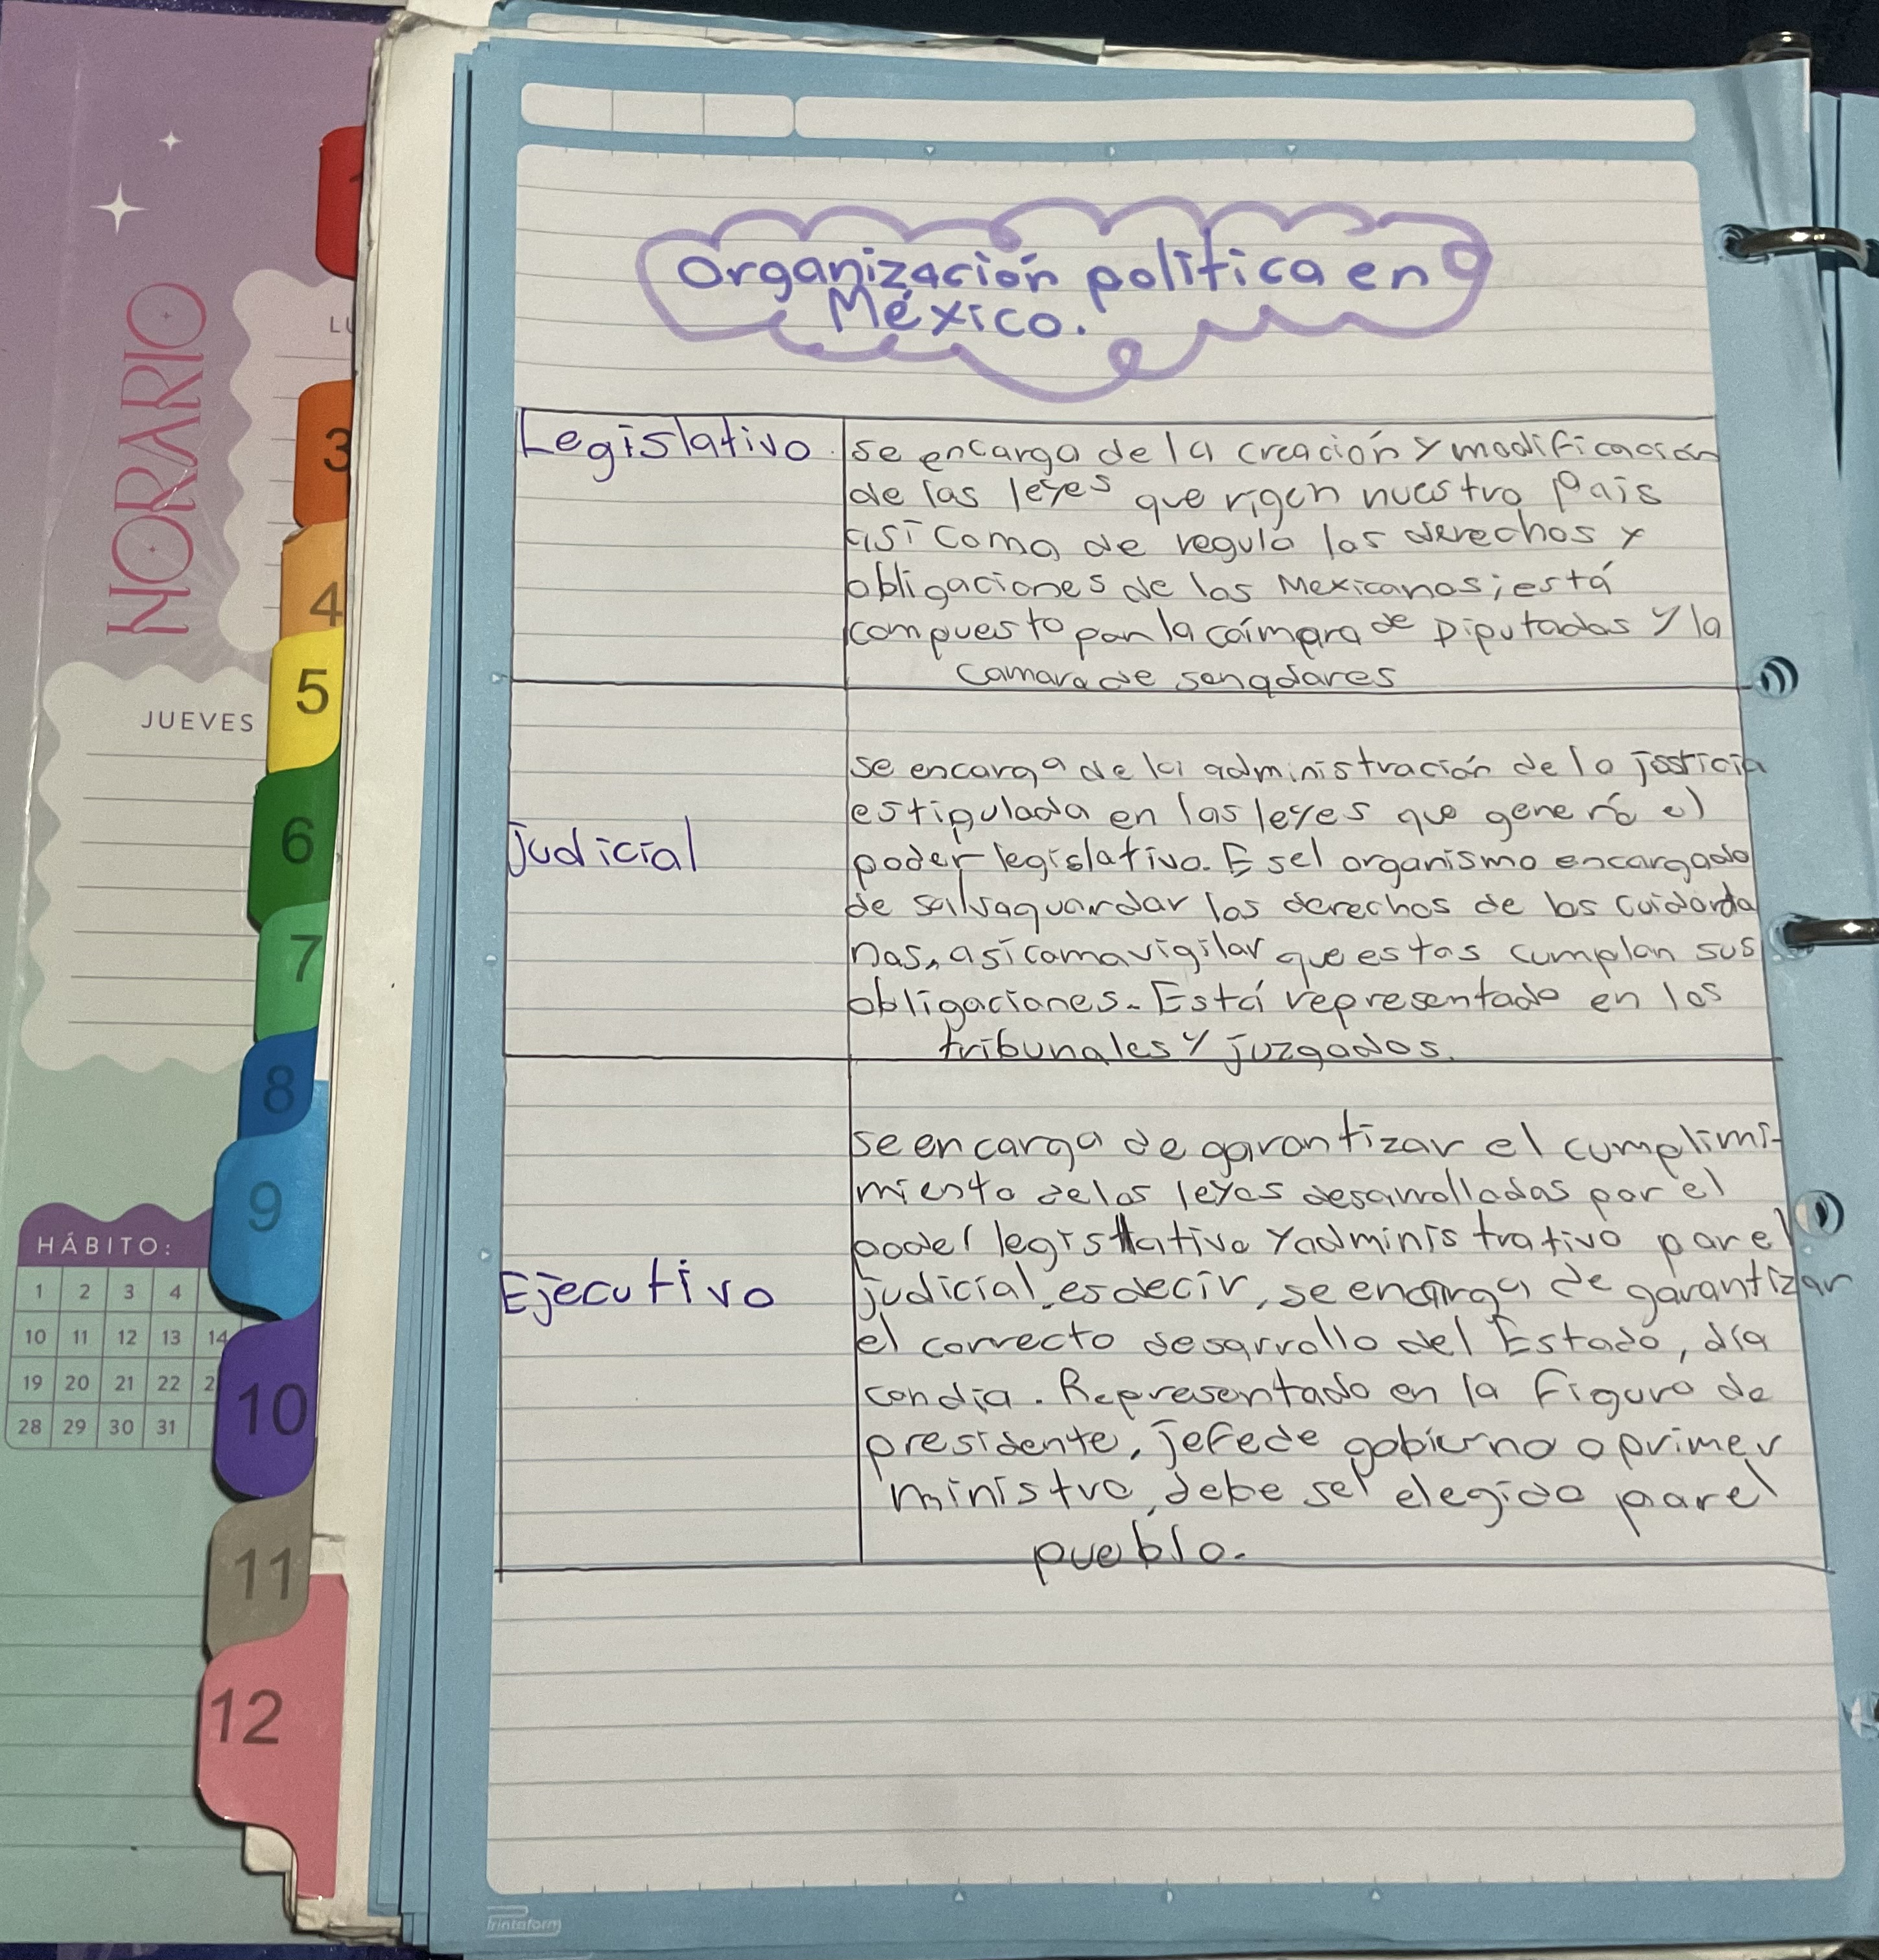 HORARIO
LU
JUEVES
HÁBITO:
1 2 3 4
10 11 12 13 14
19 20 21 22 2
28 29 30 31
1
3
4
5
6
7
8
9
10
11
12
Organización política en
México.
Legislativo.
se encarga de la creación y modificación
de las leyes que rigen nuestro Pais
así como de regula los derechos y
obligaciones de los Mexicanos; está
compuesto por la cámara de Diputados y la
camara de senadores
Judicial
se encarga de la administración de la justicia
estipulada en las leyes que genera el
poder legislativo. Es el organismo encargado
de salvaguardar los derechos de los cuidarda
nos, así como vigilar que estos cumplan sus
obligaciones. Está representado en los
tribunales y juzgados.
Ejecutivo
se encarga de garantizar el cumplimi-
miento de las leyes desarrolladas por el
poder legislativo y administrativo por el
judicial, es decir, se encarga de garantizar
el correcto desarrollo del Estado, día
con día. Representado en la Figura de
presidente, jefe de gobierno o primer
ministro, debe ser elegido por el
pueblo.
Printaform